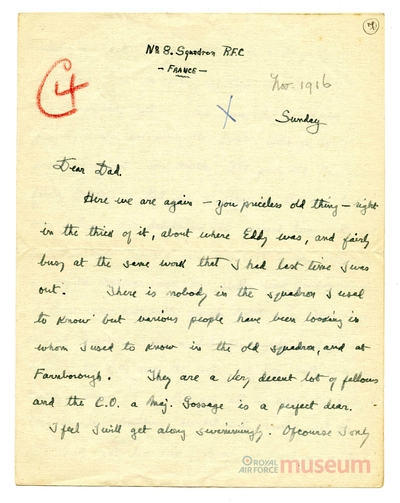 14
No 8. Squadron R.F.C
- FRANCE -
C4
Nov. 1916
X
Sunday
Dear Dad.
Here we are again – you priceless old thing – right
in the thick of it, about where Eddy was, and fairly
busy at the same work that I had last time I was
out. There is nobody in the squadron I used
to know but various people have been looking in
whom I used to know in the old squadron, and at
Farnborough. They are a very decent lot of fellows
and the C.O. a Maj. Gossage is a perfect dear.
I feel I will get along swimmingly. Ofcourse I only
ROYAL AIR FORCE museum